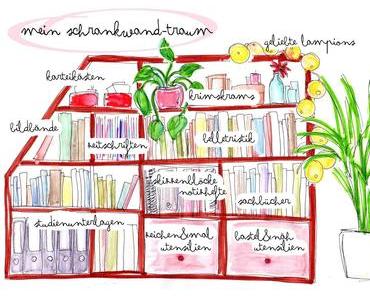 mein schrankwand-traum
geliebte lampions
karteikästen
krimskrams
bildbände
zeitschriften
belletristik
skizzenblöcke
notizhefte
sachbücher
studienunterlagen
zeichen&mal
utensilien
bastel&näh
utensilien